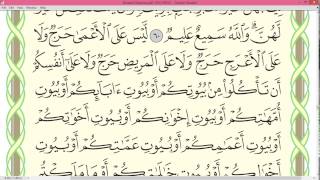 لَهُنَّ ۗ وَٱللَّهُ سَمِيعٌ عَلِيمٌ ٦٠ لَّيْسَ عَلَى ٱلْأَعْمَىٰ حَرَجٌ وَلَا
عَلَى ٱلْأَعْرَجِ حَرَجٌ وَلَا عَلَى ٱلْمَرِيضِ حَرَجٌ وَلَا عَلَىٰٓ أَنفُسِكُمْ
أَن تَأْكُلُوا۟ مِنۢ بُيُوتِكُمْ أَوْ بُيُوتِ ءَابَآئِكُمْ أَوْ بُيُوتِ
أُمَّهَٰتِكُمْ أَوْ بُيُوتِ إِخْوَٰنِكُمْ أَوْ بُيُوتِ أَخَوَٰتِكُمْ أَوْ
بُيُوتِ أَعْمَٰمِكُمْ أَوْ بُيُوتِ عَمَّٰتِكُمْ أَوْ بُيُوتِ
أَخْوَٰلِكُمْ أَوْ بُيُوتِ خَٰلَٰتِكُمْ أَوْ مَا مَلَكْتُم